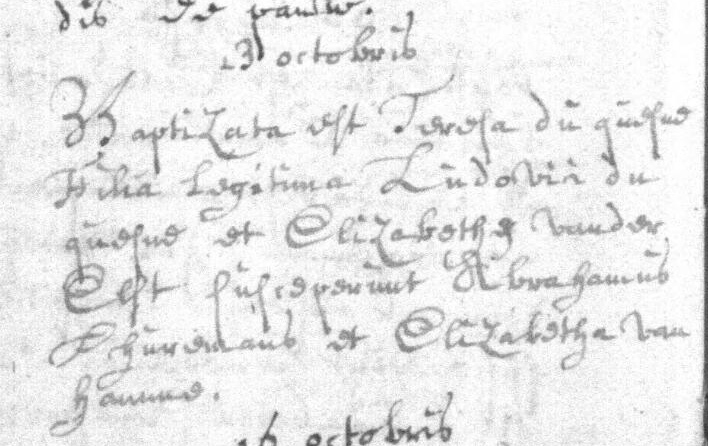 dis de pauw.
13 octobris
Baptizata est Teresa du quesne
filia legitima Ludovici du
quesne et Elizabethe vander
Elst susceperunt Abrahamus
et Elizabetha van
hamme.
16 octobris